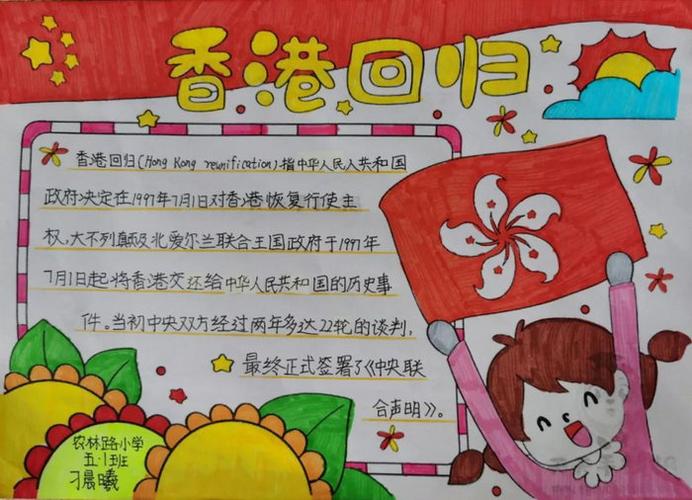 香港回归
香港回归(Hong Kong reunification)指中华人民人共和国
政府决定在1997年7月1日对香港恢复行使主
权,大不列颠及北爱尔兰联合王国政府于1997年
7月1日起将香港交还给中华人民共和国的历史事
件。当初中央双方经过两年多达22轮的谈判,
最终正式签署了《中央联
合声明》。
农林路小学
五·1班
刁晨曦